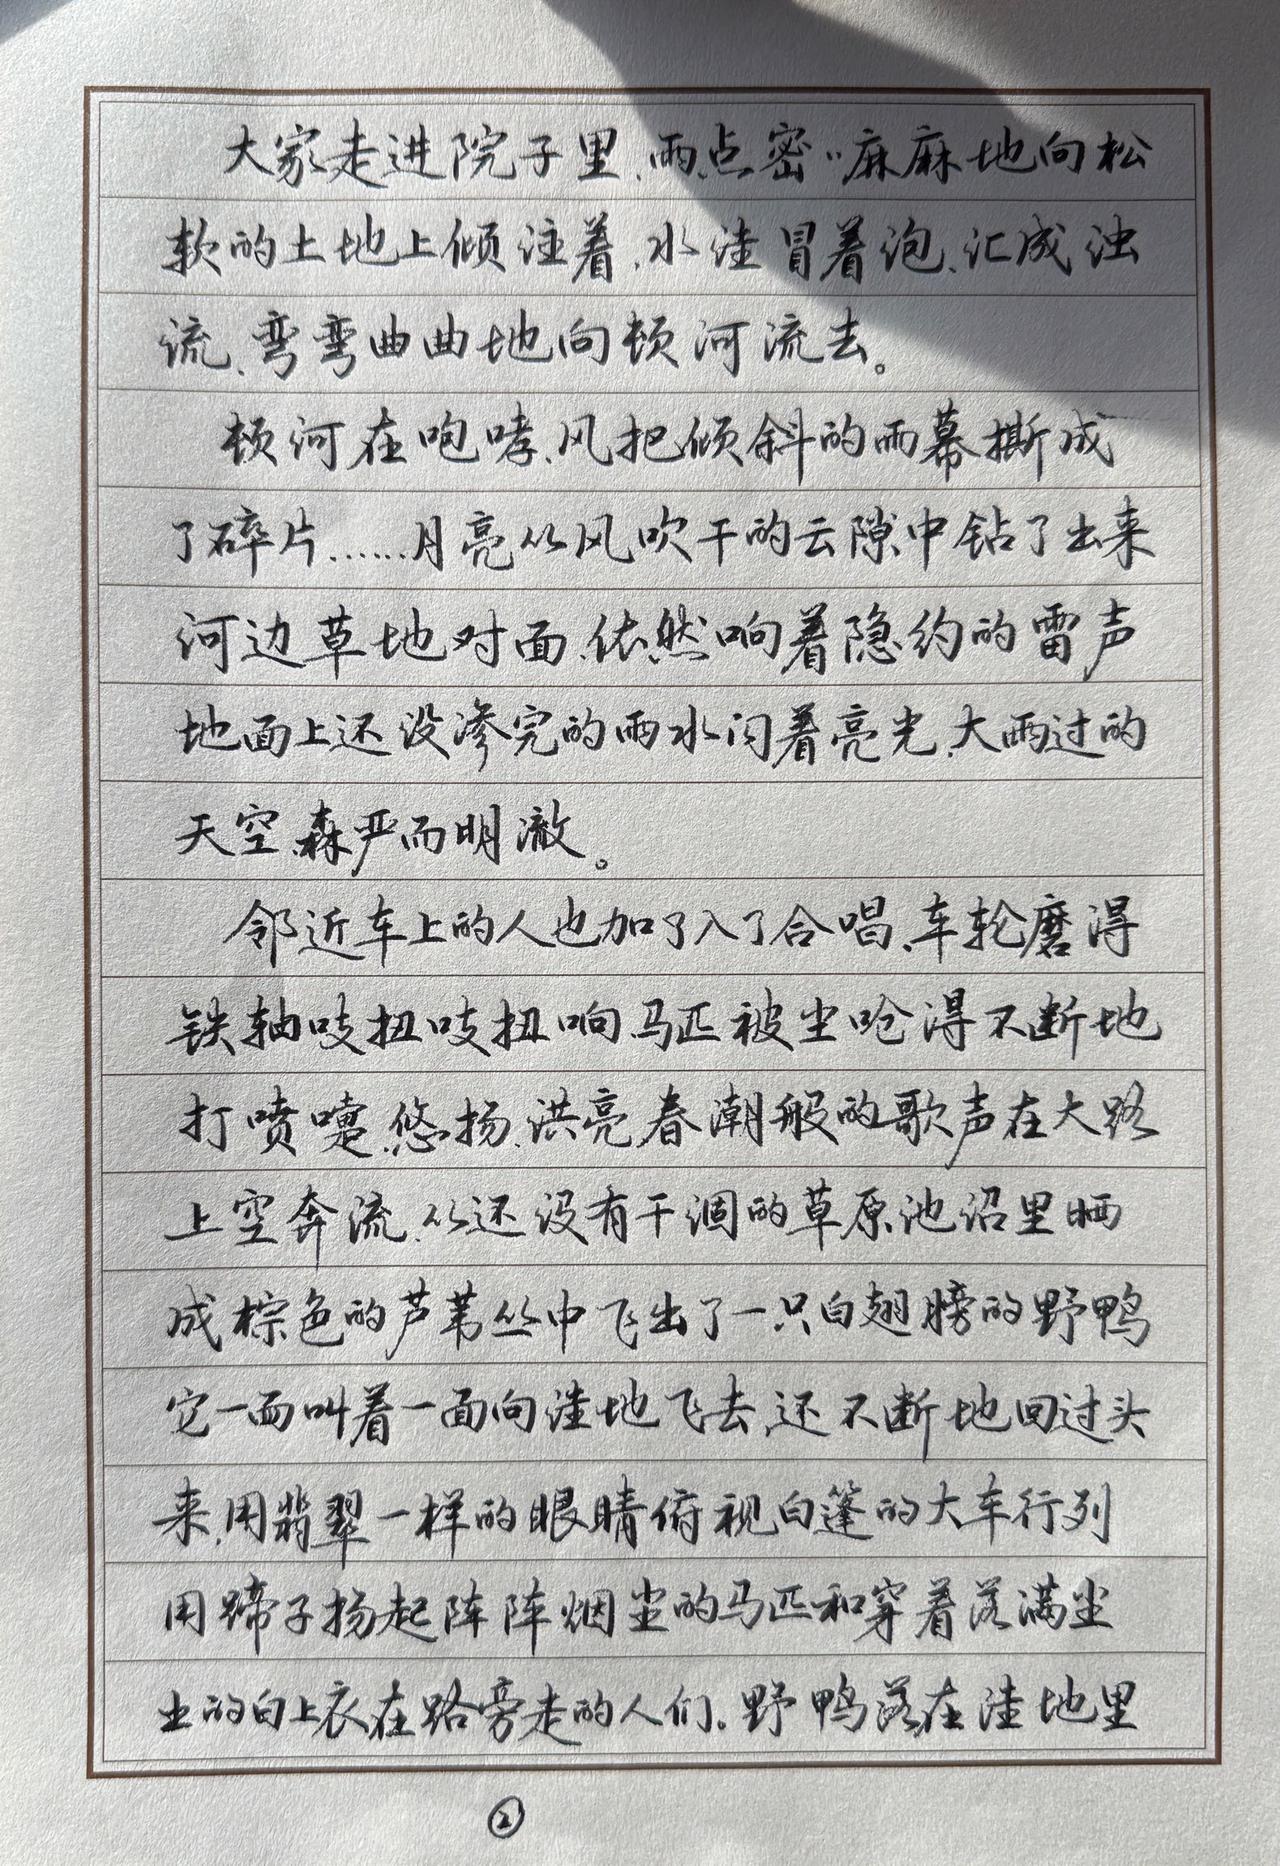 大家走进院子里、雨点密〃麻麻地向松
软的土地上倾注着、水洼冒着泡、汇成浊
流、弯弯曲曲地向顿河流去。
顿河在咆哮、风把倾斜的雨幕撕成
了碎片……月亮从风吹干的云隙中钻了出来
河边草地对面、依然响着隐约的雷声
地面上还没渗完的雨水闪着亮光、大雨过的
天空、森严而明澈。
邻近车上的人也加了入了合唱、车轮磨得
铁轴吱扭吱扭响马匹被尘呛得不断地
打喷嚏、悠扬、洪亮春潮般的歌声在大路
上空奔流、从还没有干涸的草原池沼里晒
成棕色的芦苇丛中飞出了一只白翅膀的野鸭
它一面叫着一面向洼地飞去、还不断地回过头
来、用翡翠一样的眼睛俯视白篷的大车行列
用蹄子扬起阵阵烟尘的马匹和穿着落满尘
土的白上衣在路旁走的人们。野鸭落在洼地里
②